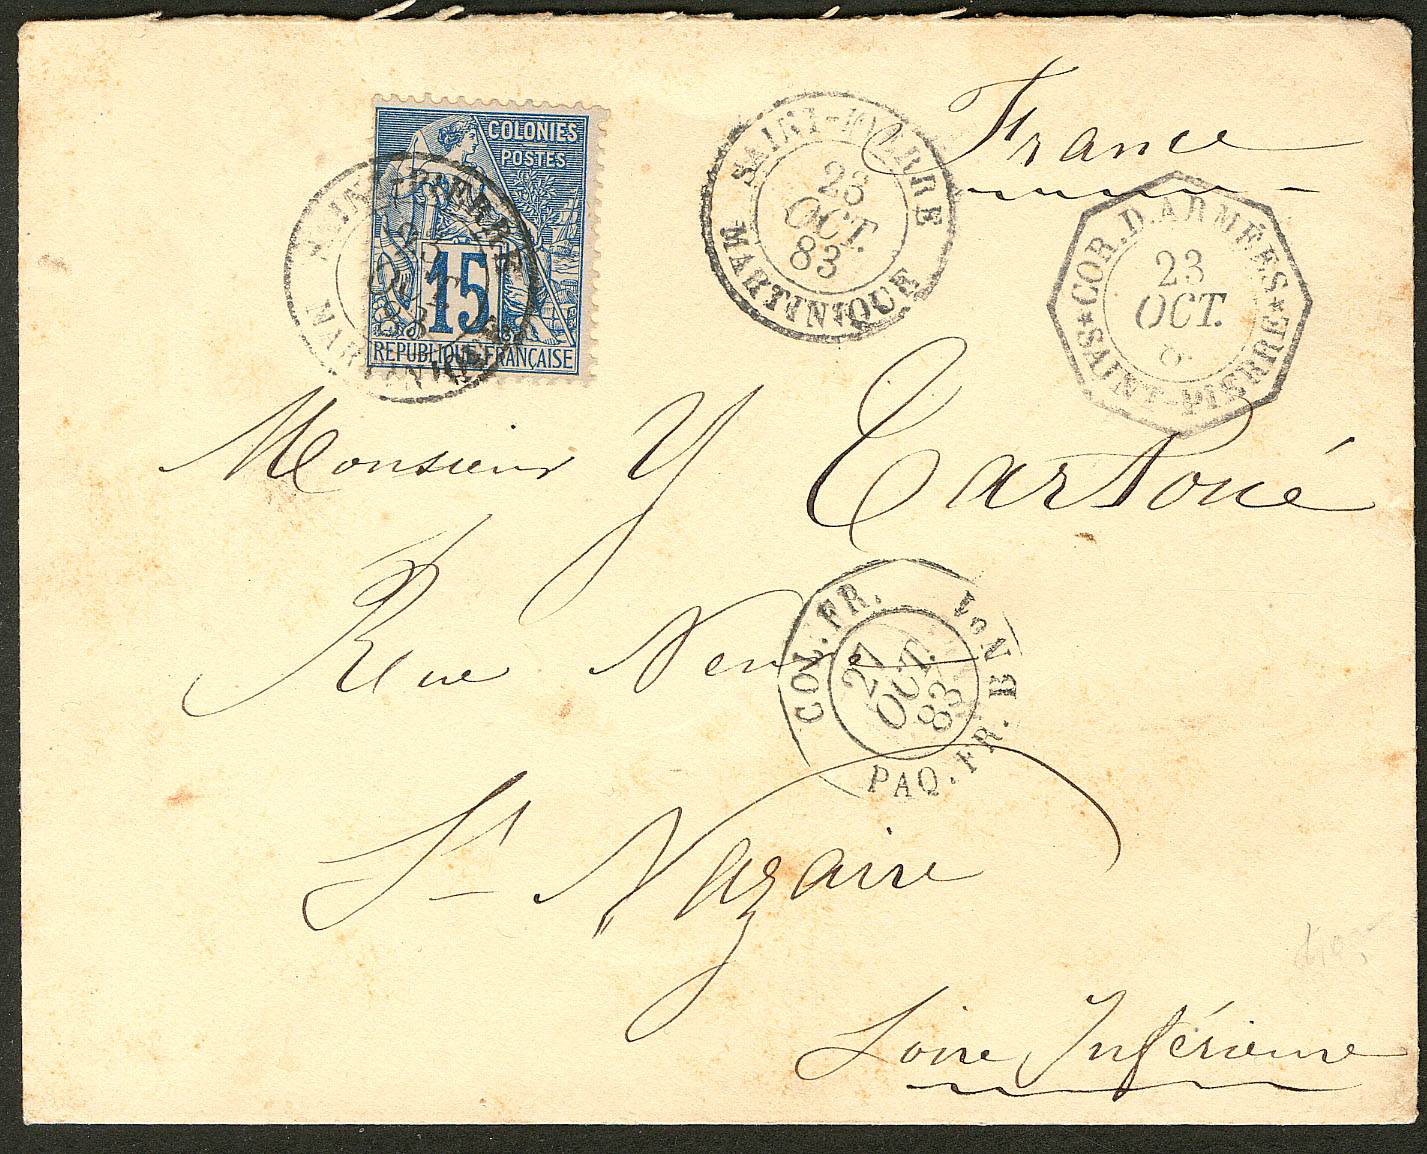 France
COLONIES
POSTES
15
REPUBLIQUE FRANÇAISE
SAINT-PIERRE
23
OCT.
83
MARTINIQUE
SAINT-PIERRE
23
OCT.
83
MARTINIQUE
COR. D. ARMÉES
23
OCT.
8
*SAINT-PIERRE*
Monsieur Y
Rue
COL. FR.
27
OCT.
83
PAQ. FR. B No
St Nazaire
Loire Inférieure